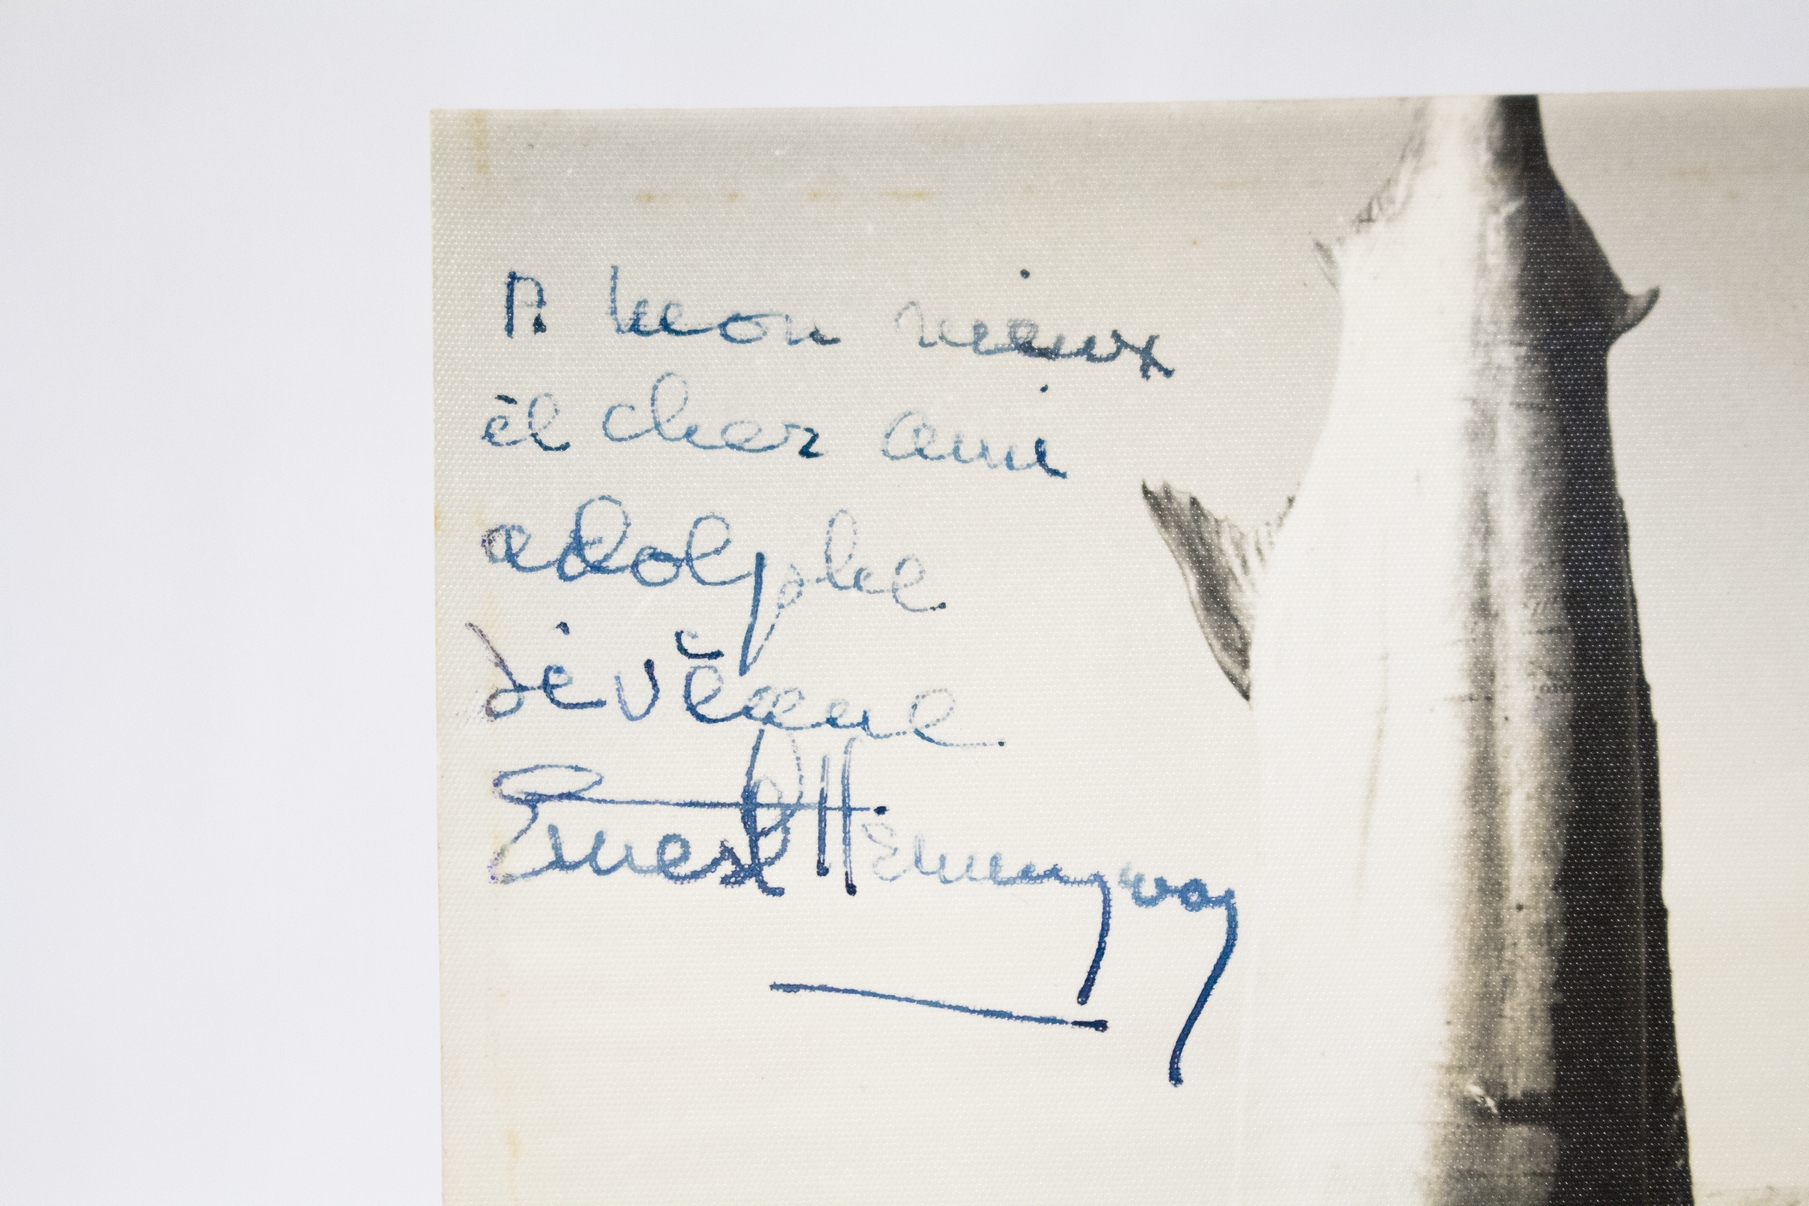 A mon vieux
et cher ami
adolphe
de
Ernest Hemingway